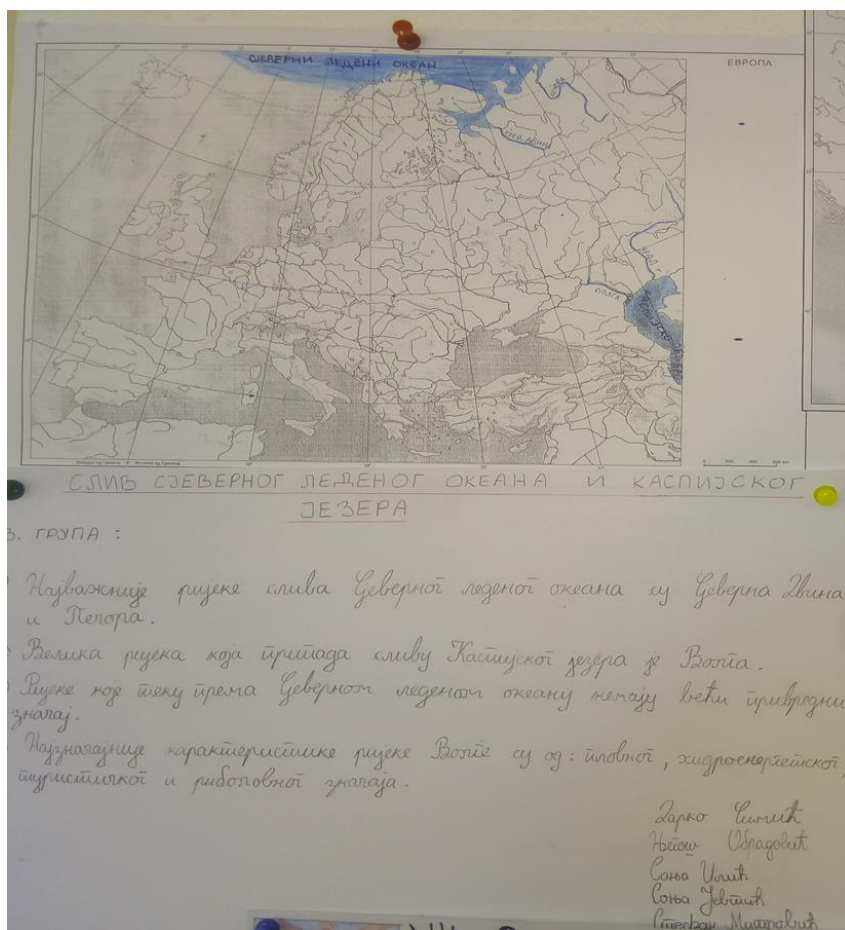 СЈЕВЕРНИ ЛЕДЕНИ ОКЕАН
ЕВРОПА
СЈЕВ. ДВИНА
УРАЛ
ВОЛГА
СЛИВ СЈЕВЕРНОГ ЛЕДЕНОГ ОКЕАНА И КАСПИЈСКОГ
ЈЕЗЕРА
3. ГРУПА :
Најважније ријеке слива Сјеверног леденог океана су Сјеверна Двина
и Печора.
Велика ријека која припада сливу Каспијског језера је Волга.
Ријеке које теку према Сјеверном леденом океану немају већи привредни
значај.
Најзначајније карактеристике ријеке Волге су од: пловног, хидроенергетског,
туристичког и риболовног значаја.
Дарко
Његош Обрадовић
Сања Илић
Соња Јевтић
Стефан Митровић